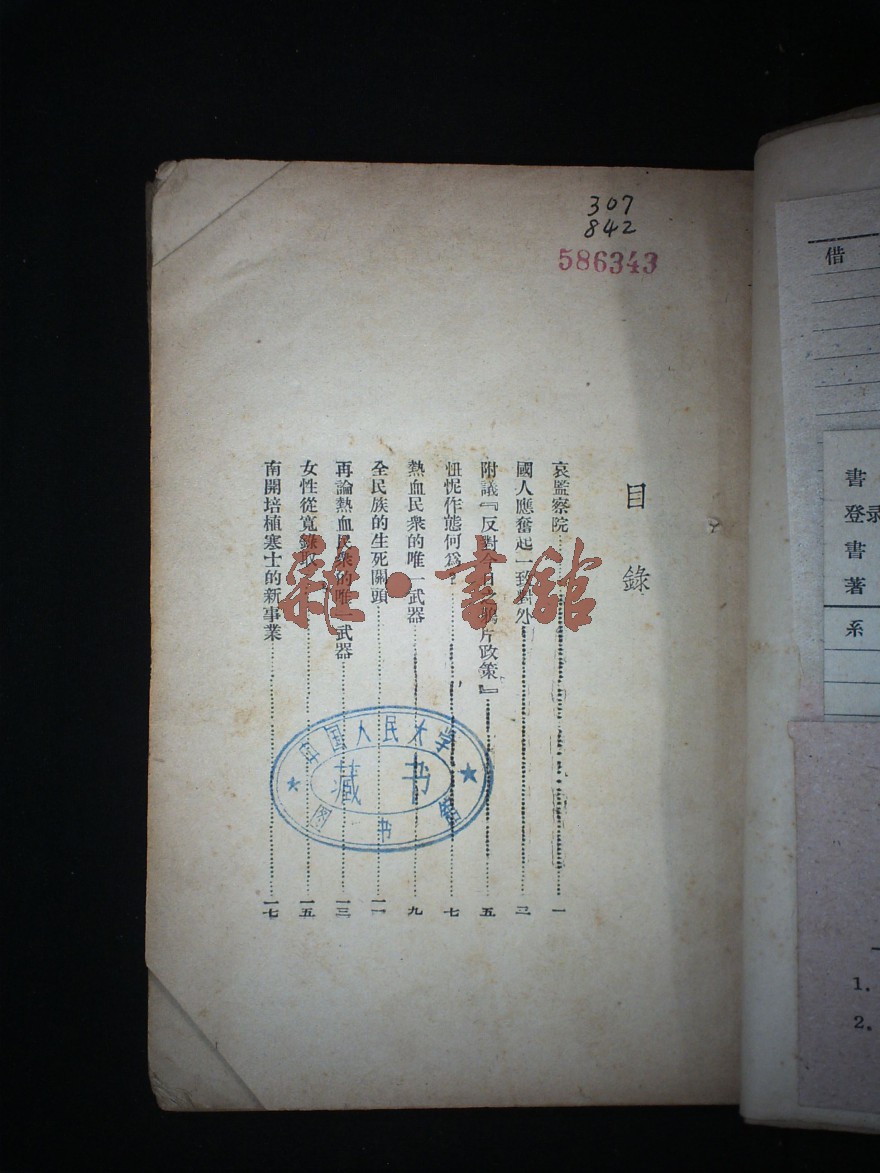 307
842
586343
目錄
哀監察院 一
國人應奮起一致對外 三
附議『反對今日之鴉片政策』 五
忸怩作態何為？ 七
熱血民衆的唯一武器 九
全民族的生死關頭 一一
再論熱血民衆的唯一武器 一三
女性從寬錄取 一五
南開培植寒士的新事業 一七
雜·書館
中国人民大学
藏书
图书馆
借
書
登录
書
著
系
1.
2.